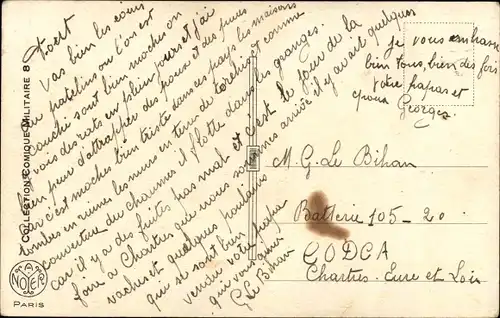 COLLECTION COMIQUE MILITAIRE 8
A NOYER
PARIS
Vas bien les
en patelins ou l'on est
couché sont bien moches on
vois des rats en plein jours et j'ai
bien peur d'attrapper des poux et des puces
car c'est moches bien triste dans ces pays les maisons
tombes en ruines les murs en terre de torchis et comme
couverture du chaumes il flotte dans les granges.
car il y a des fuites pas mal et c'est le jour de la
foire a Chartres que nous sommes arrivé il y avait quelques
vaches et quelques poulains
qui se sont bien
vendu votre papa
qui vous aime
G Le Bihan
je vous embrasse
bien tous, bien des fois
votre papas et
époux
Georges
M. G. Le Bihan
Batterie 105-20
CODCA
Chartres. Eure et Loir